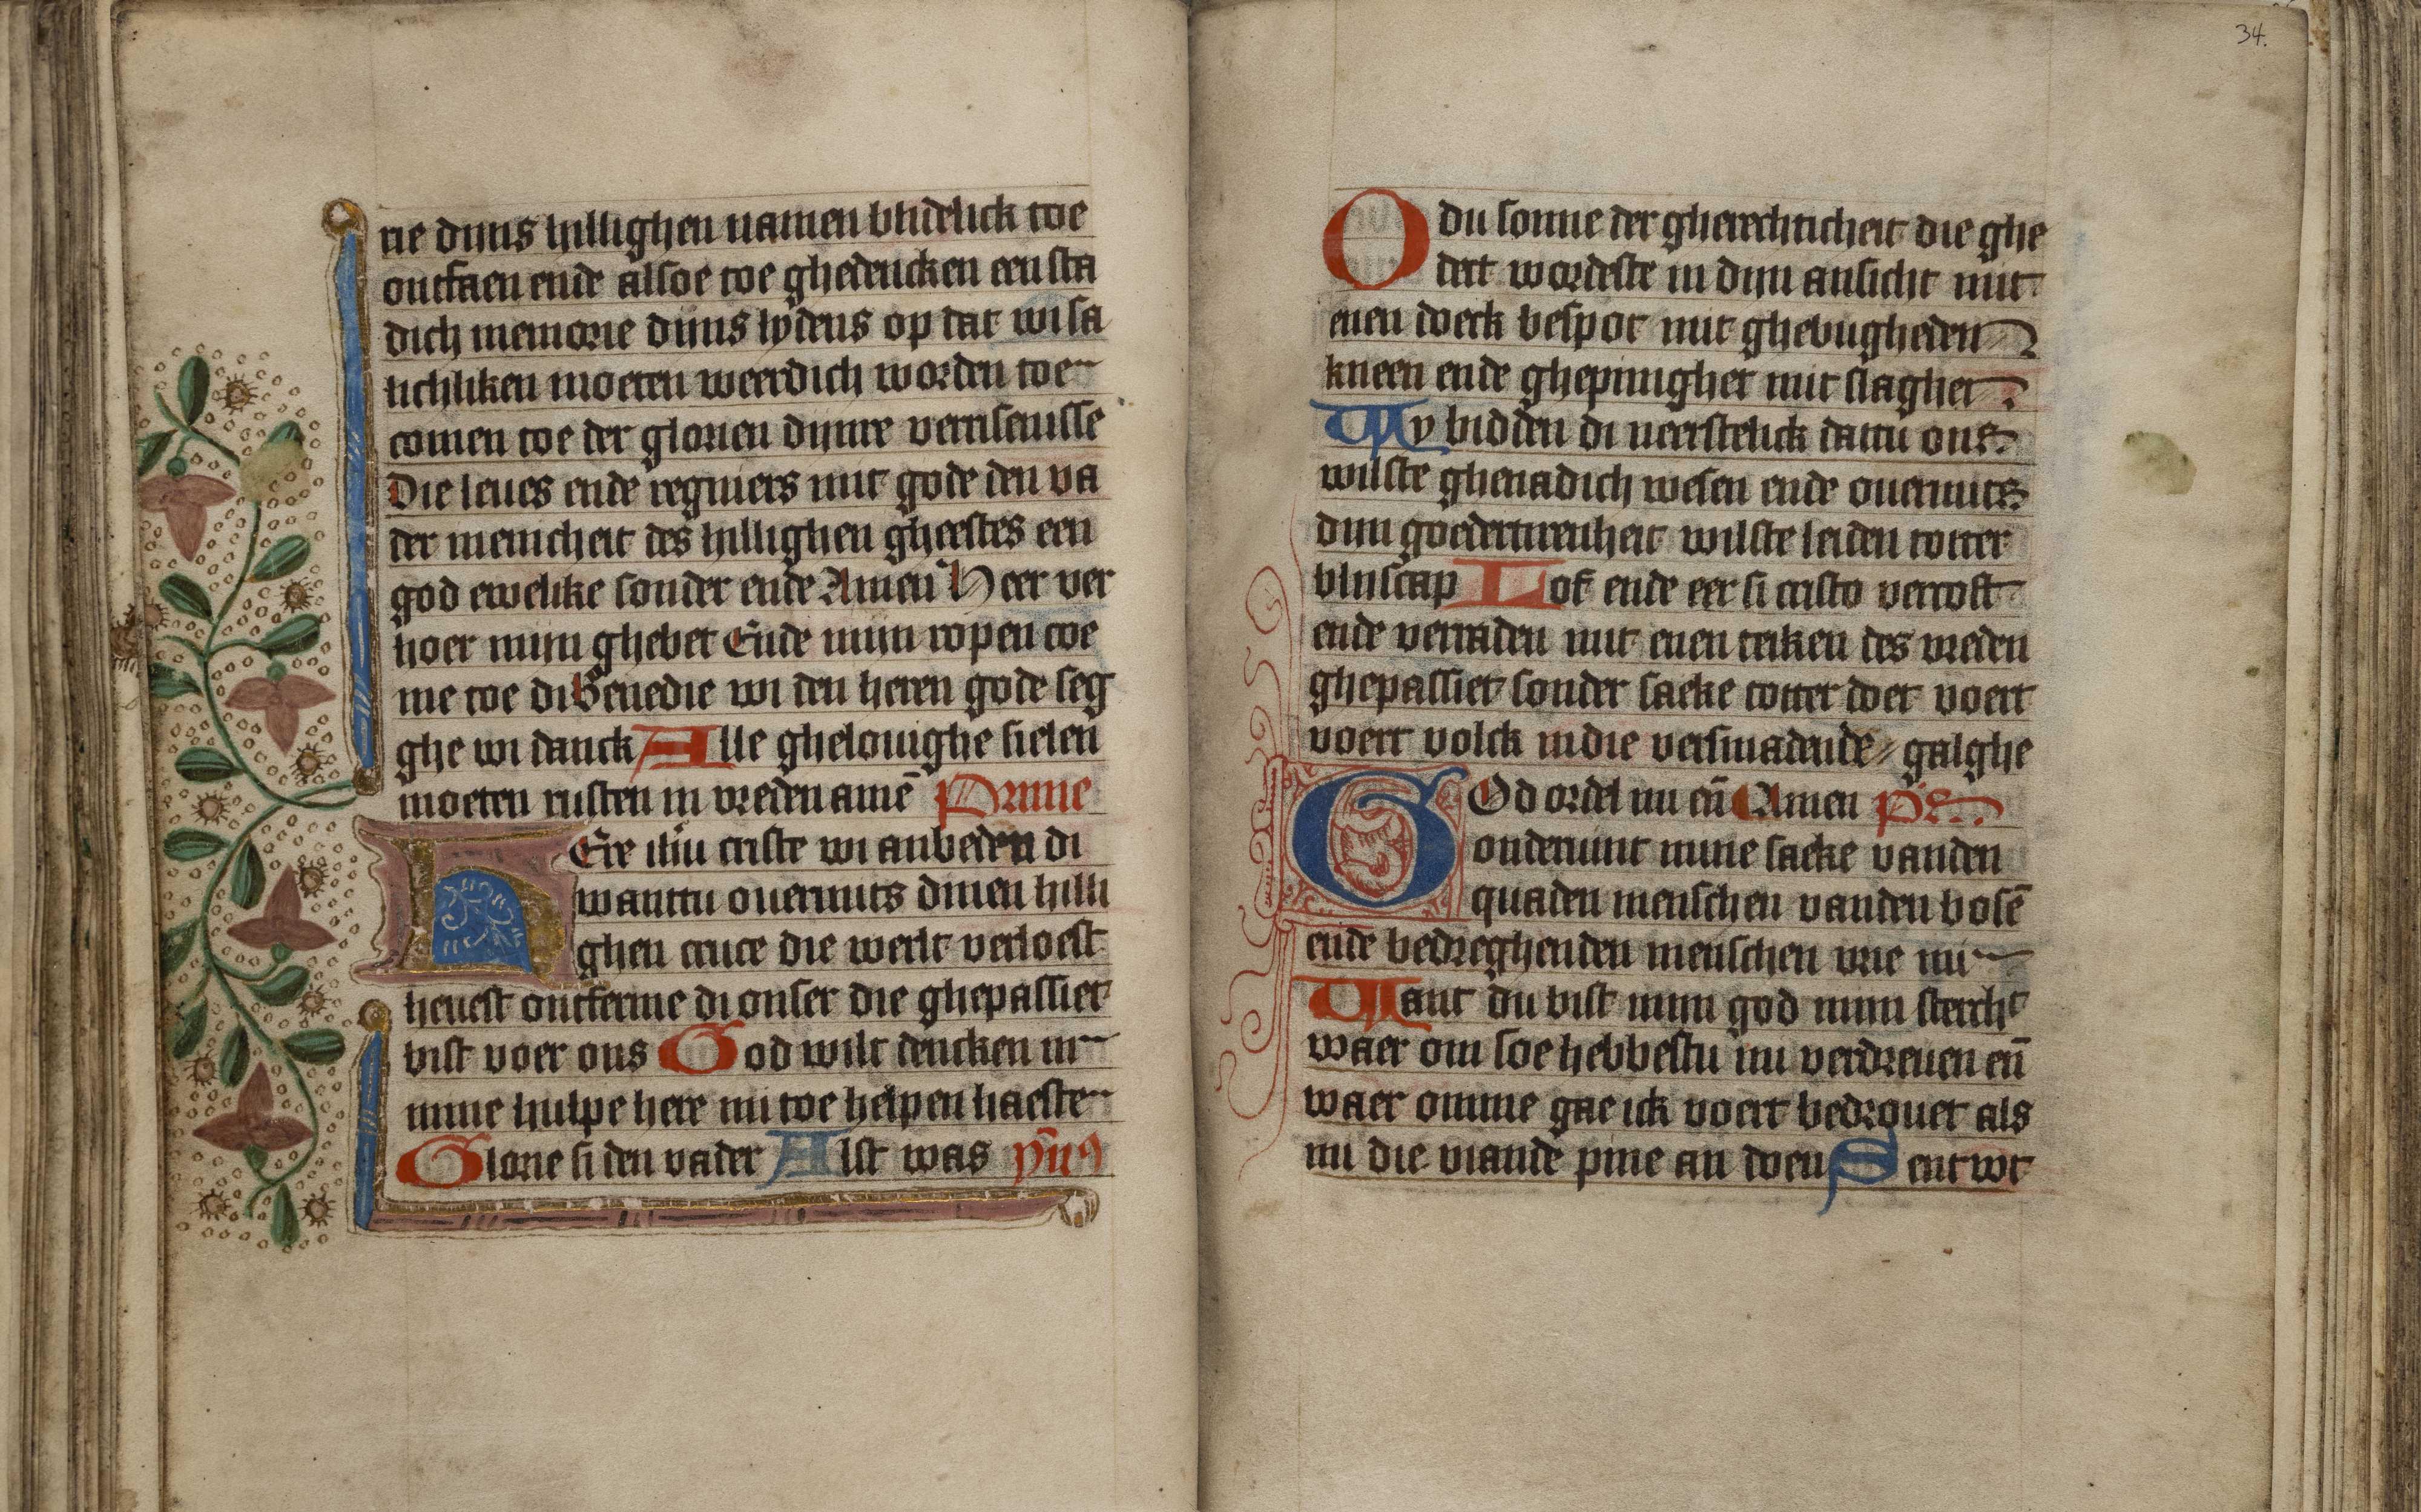 rie dijns hillighen namen blidelick toe
ontfaen ende alsoe toe ghedencken een sta
dich memorie dijns lydens op dat wi sa
lichliken moeten weerdich worden toe
comen toe der glorien dijnre verrisenisse
Die leues ende regniers mit gode den va
der in enicheit des hillighen gheestes een
god ewelike sonder ende Amen Heer ver
hoer mijn ghebet Ende mijn ropen toe
me toe di Benedie wi den heren gode seg
ghe wi danck Alle ghelouighe sielen
moeten rusten in vreden amē Prime
HEre ihū criste wi anbeden di
wanttu ouermits dinen hilli
ghen cruce die werlt verloest
heuest ontferme di onser die ghepassiet
bist voer ons God wilt dencken in
mine hulpe here mi toe helpen haeste
Glorie si den vader Alst was ymꝰ
34.
O du sonne der gherechticheit die ghe
dect wordeste in dijn ansicht mit
enen doeck bespot mit ghebugheden
kneen ende ghepinighet mit slaghen
Wy bidden di neerstelick dattu ons
wilste ghenadich wesen ende ouermits
dijn goedertirenheit wilste leiden totter
blijscap Lof ende eer si cristo vercoft
ende verraden mit enen teiken des vreden
ghepassiet sonder sacke totter doet voert
voert volck in die versmadende galghe
GOd ordel mi eñ Amen Ps
onderuint mine sacke vanden
quaden menschen vanden bosē
ende bedreghenden menschen vrie mi
Want du bist mijn god mijn sterckt
waer om soe hebbestu mi verdreuen eñ
waer omme gae ick voert bedrouet als
mi die viande pine an doen Sent wt